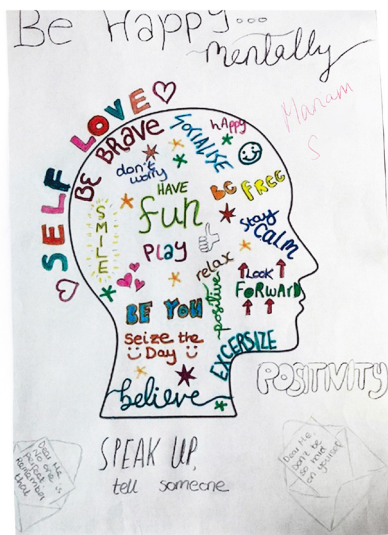 Be Happy...
mentally
Manam
S
SELF LOVE
BE BRAVE
SOCIALISE
hAppy
don't
worry
HAVE
fun
BE FREE
SMILE
PLAY
stay
CALM
relax
Look
FORWARD
positive
BE YOU
Seize the
Day
EXCERSIZE
believe
POSITIVITY
SPEAK UP,
tell someone
Dear Me
No one
perfect
Remember
that
Dear Me
Don't be
so hard
on yourself